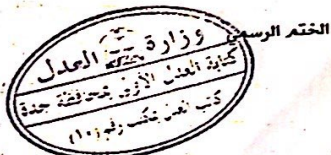 الختم الرسمي
وزارة العدل
كتابة العدل الأولى بمحافظة جدة
كاتب العدل بمكتب رقم (١٠)